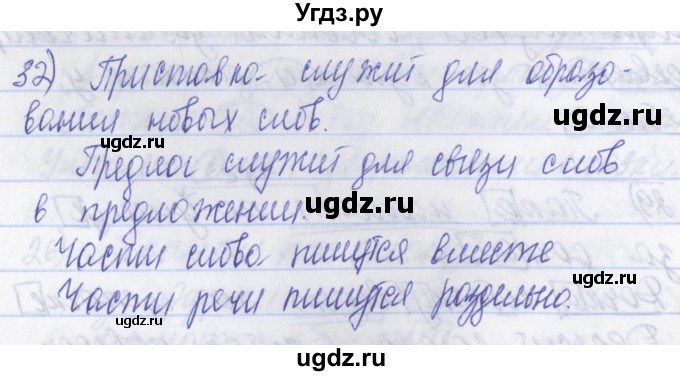 Угдз.ру
32) Приставка служит для образо-
вания новых слов.
ugdz.ru ugdz.ru
Предлог служит для связи слов
в предложении.
ugdz.ru
ugdz.ru
Части слова пишутся вместе
ugdz.ru
Части речи пишутся раздельно.
ugdz.ru
ugdz.ru